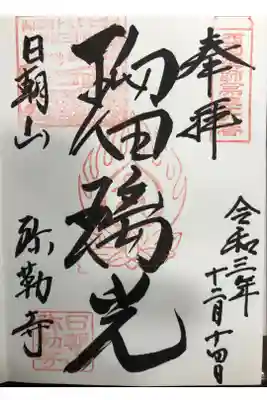 奉拝
令和三年
十二月十四日
瑠璃光
日朝山
弥勒寺